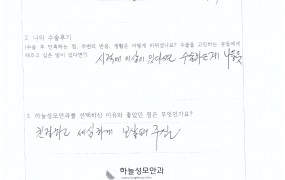 2. 나의 수술후기
(수술 후 만족하는 점, 주변의 반응, 생활은 어떻게 바뀌었나요? 수술을 고민하는 분들에게
해주고 싶은 말이 있다면?)
시력에 이상이 있다면 수술하는게 나을듯
3. 하늘성모안과를 선택하신 이유와 좋았던 점은 무엇인가요?
친절하고 세심하게 보살펴 주심
하늘성모안과